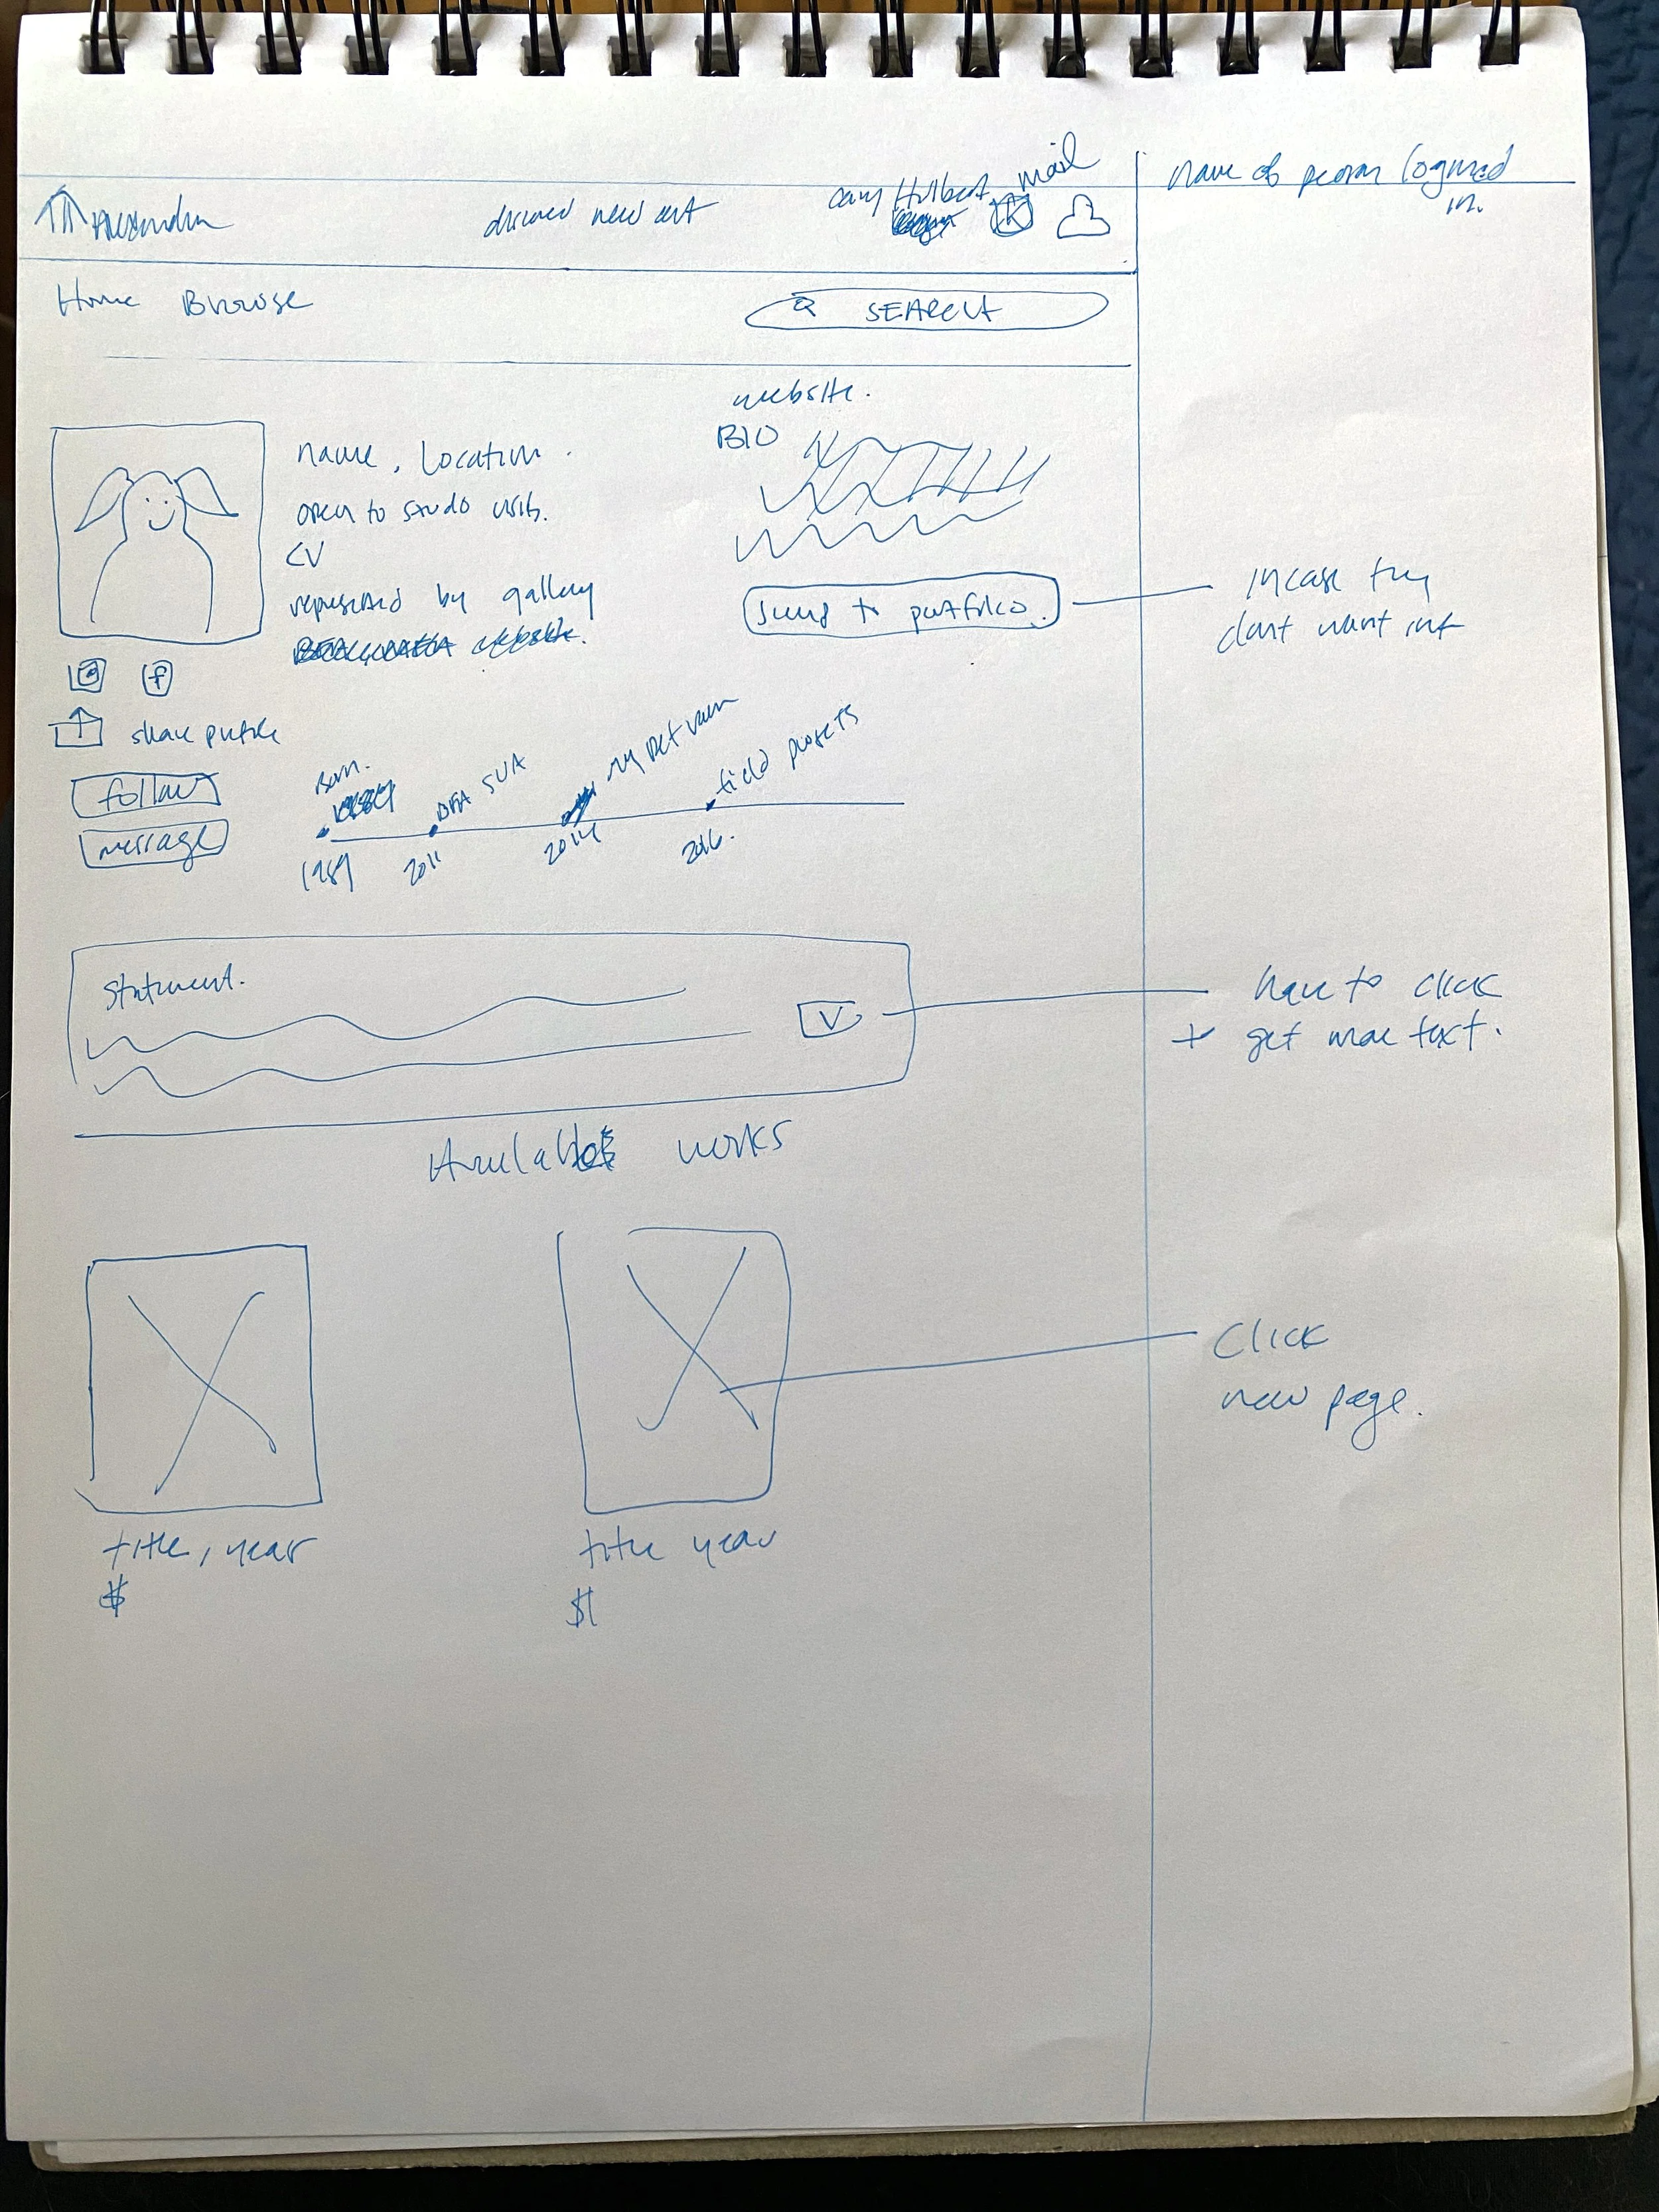 mail
name of person logged
in.
discover new art
Cary Hulbert
Home Browse
SEARCH
website.
BIO
name, Location.
open to studio visits.
CV
represented by gallery
jump to portfolio.
incase they
dont want inf
f
share profile
follow
message
Born.
BFA SUA
field projects
1989
2011
2014
2016.
Statement.
V
have to click
+ get more text.
Available works
Click
new page.
title, year
$
title year
$